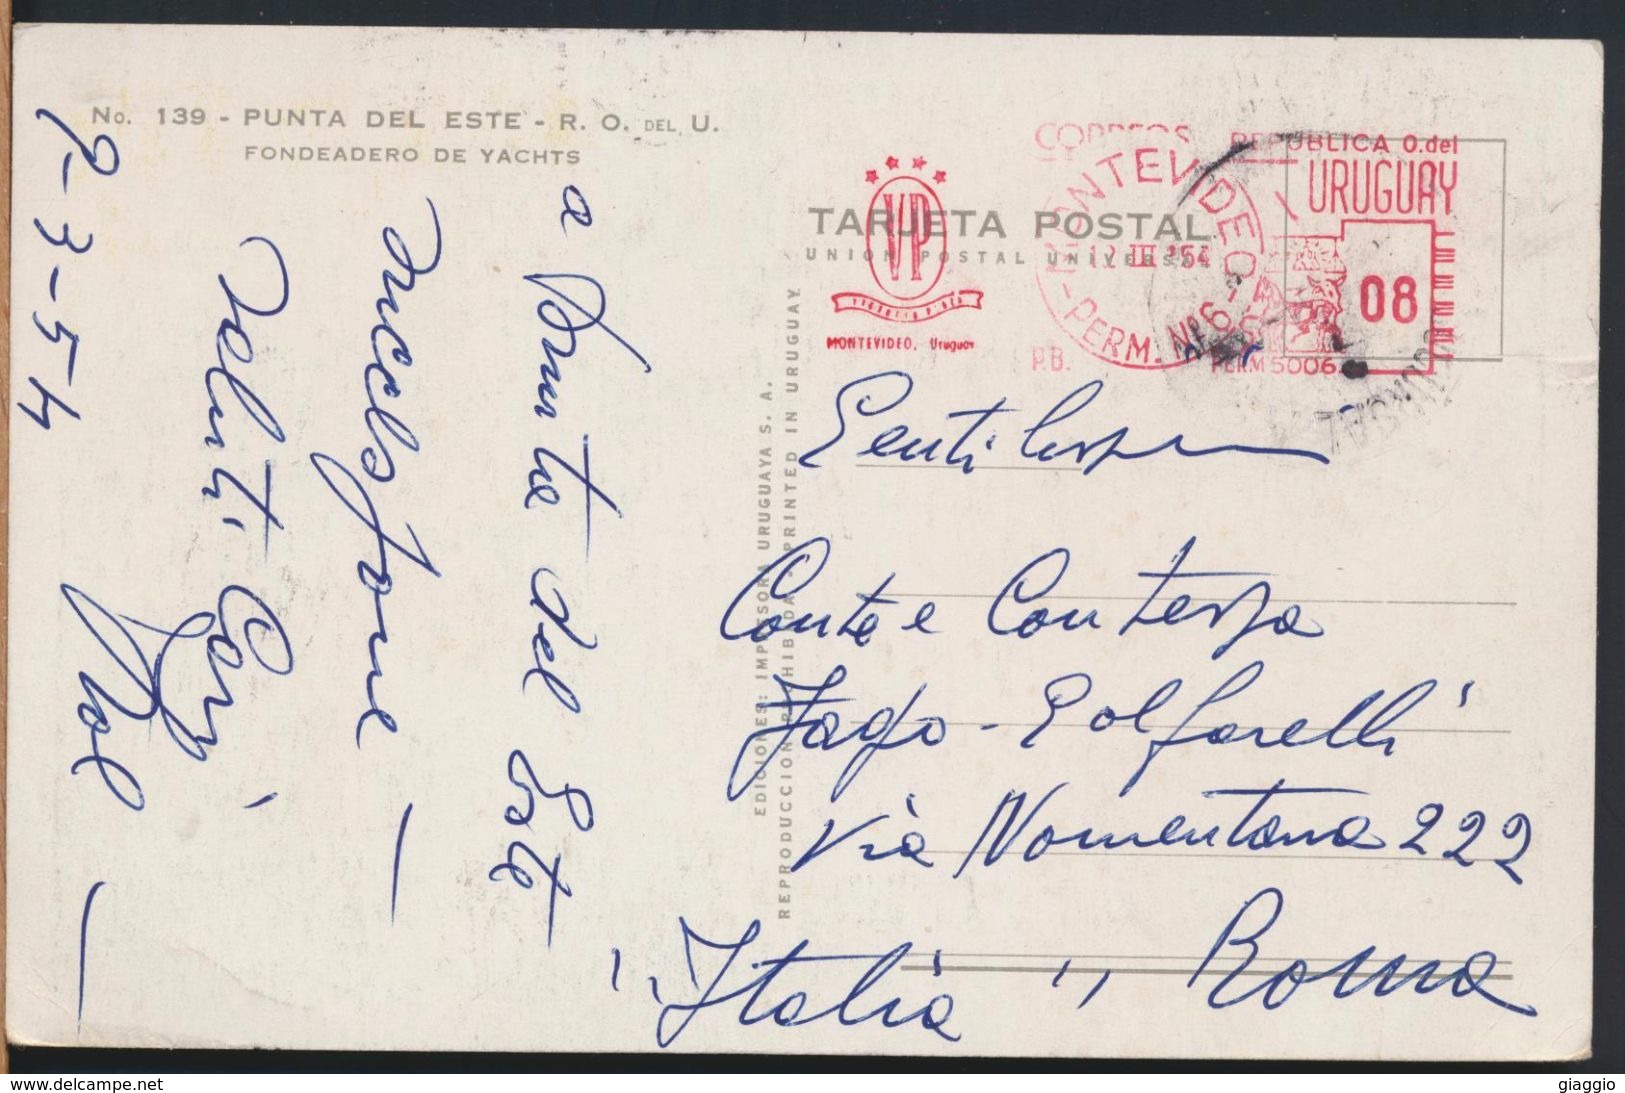 No. 139 - PUNTA DEL ESTE - R. O. DEL U.
FONDEADERO DE YACHTS
TARJETA POSTAL
UNION POSTAL UNIVERSAL
EDICIONES: IMPRESORA URUGUAYA S. A.
REPRODUCCION PROHIBIDA - PRINTED IN URUGUAY
VP
VICTORIA PLAZA
MONTEVIDEO, Uruguay
CORREOS
MONTEVIDEO
12 III 54
PERM. Nº 6
P.B.
REPUBLICA O. del
URUGUAY
08
PERM 5006
9-3-54
a Punta del Este
Saluti Cari
Conte e Contessa
Jago - Golfarelli
Via Nomentana 222
Roma
"Italia"
giaggio